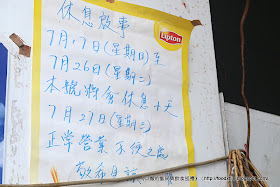 休息啟事
7月17日(星期日)至
7月26日(星期二)
本號將會休息十天
7月27日(星期三)
正常營業 不便之處
敬希見諒
Lipton